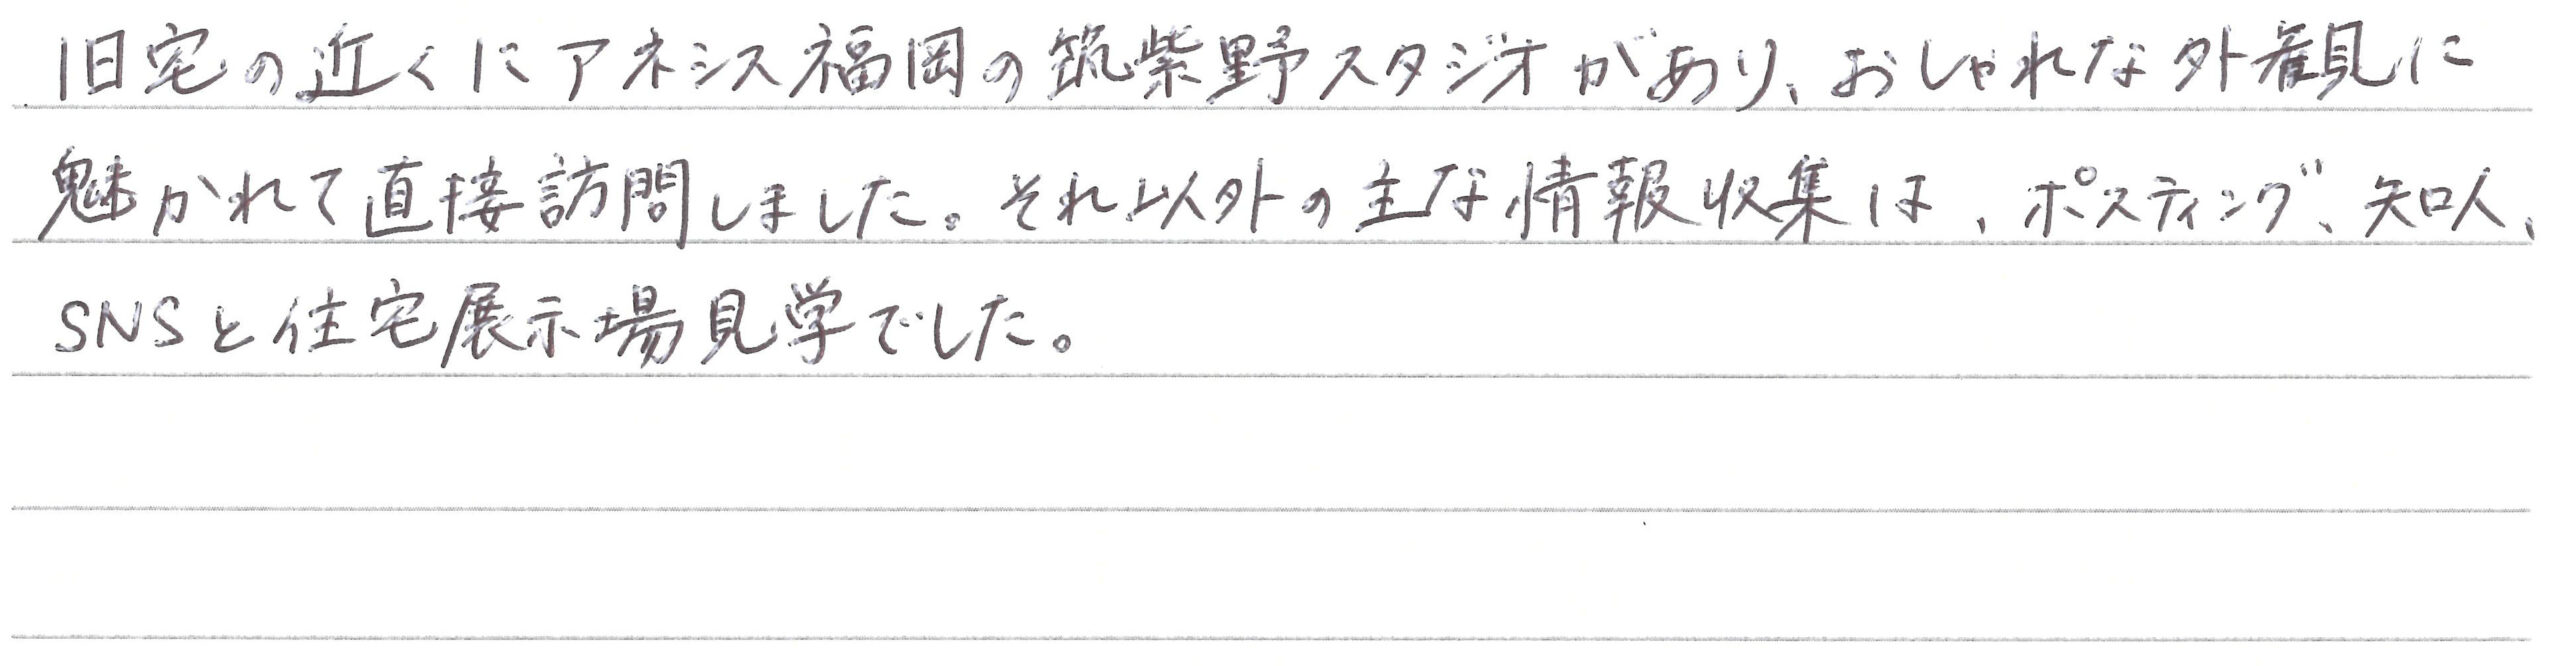 旧宅の近くにアネシス福岡の筑紫野スタジオがあり、おしゃれな外観に
魅かれて直接訪問しました。それ以外の主な情報収集は、ポスティング、知人、
SNSと住宅展示場見学でした。